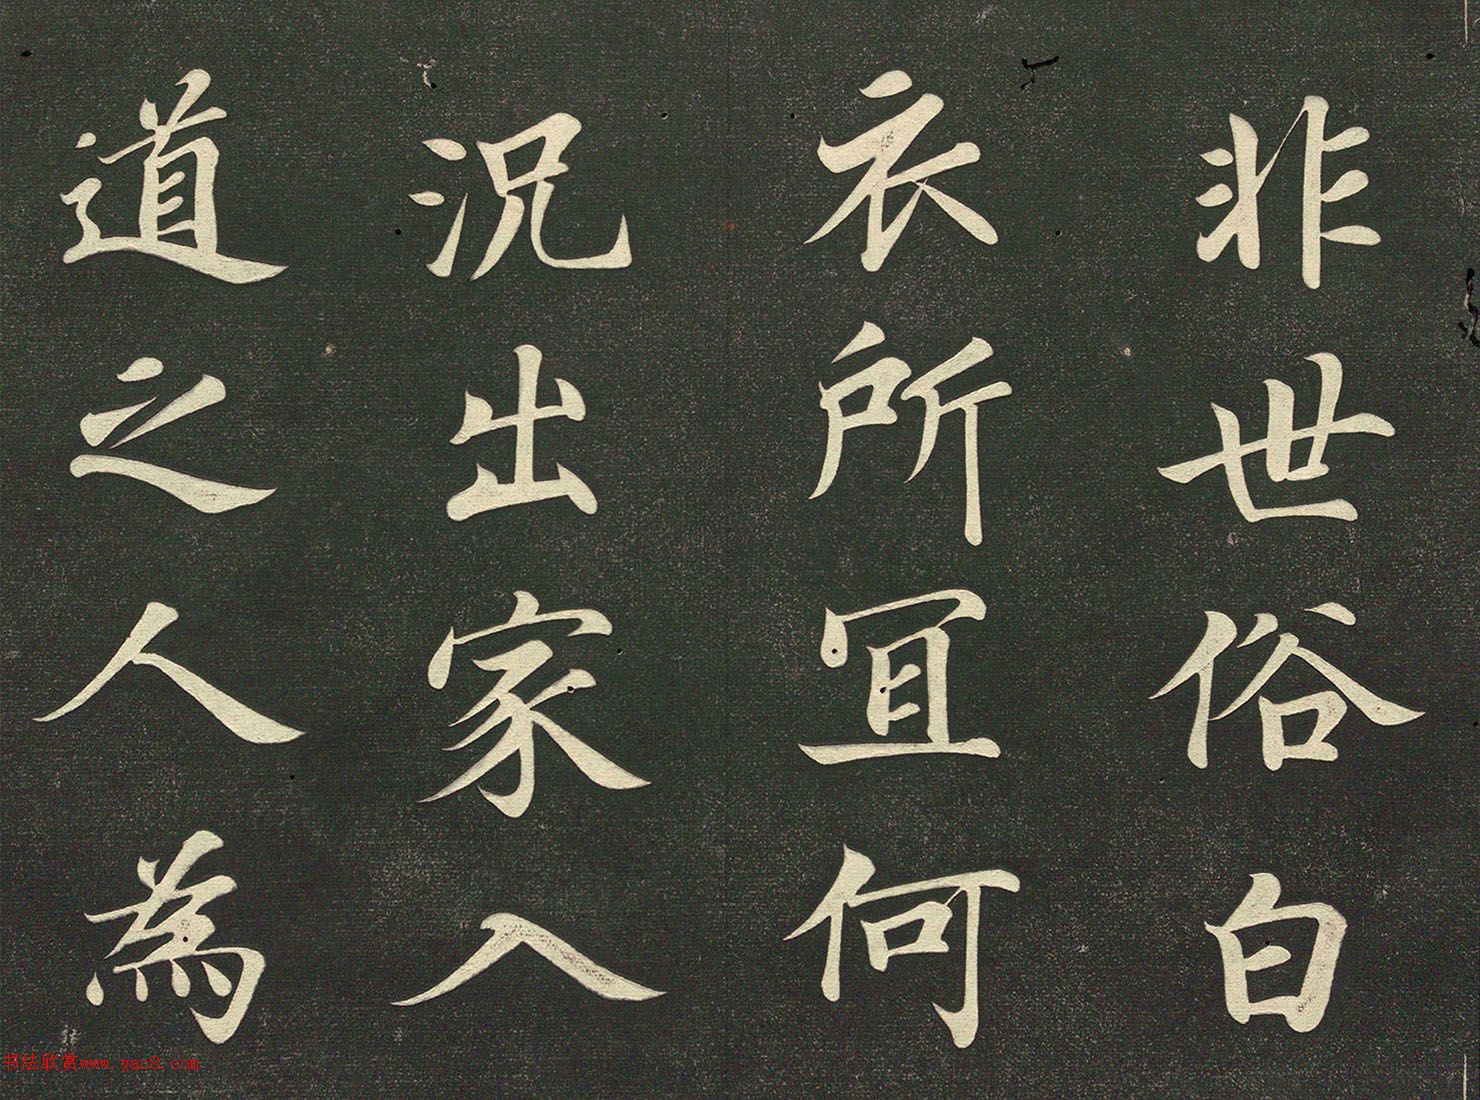 非世俗白
衣所宜何
況出家入
道之人為
书法欣赏www.yac8.com